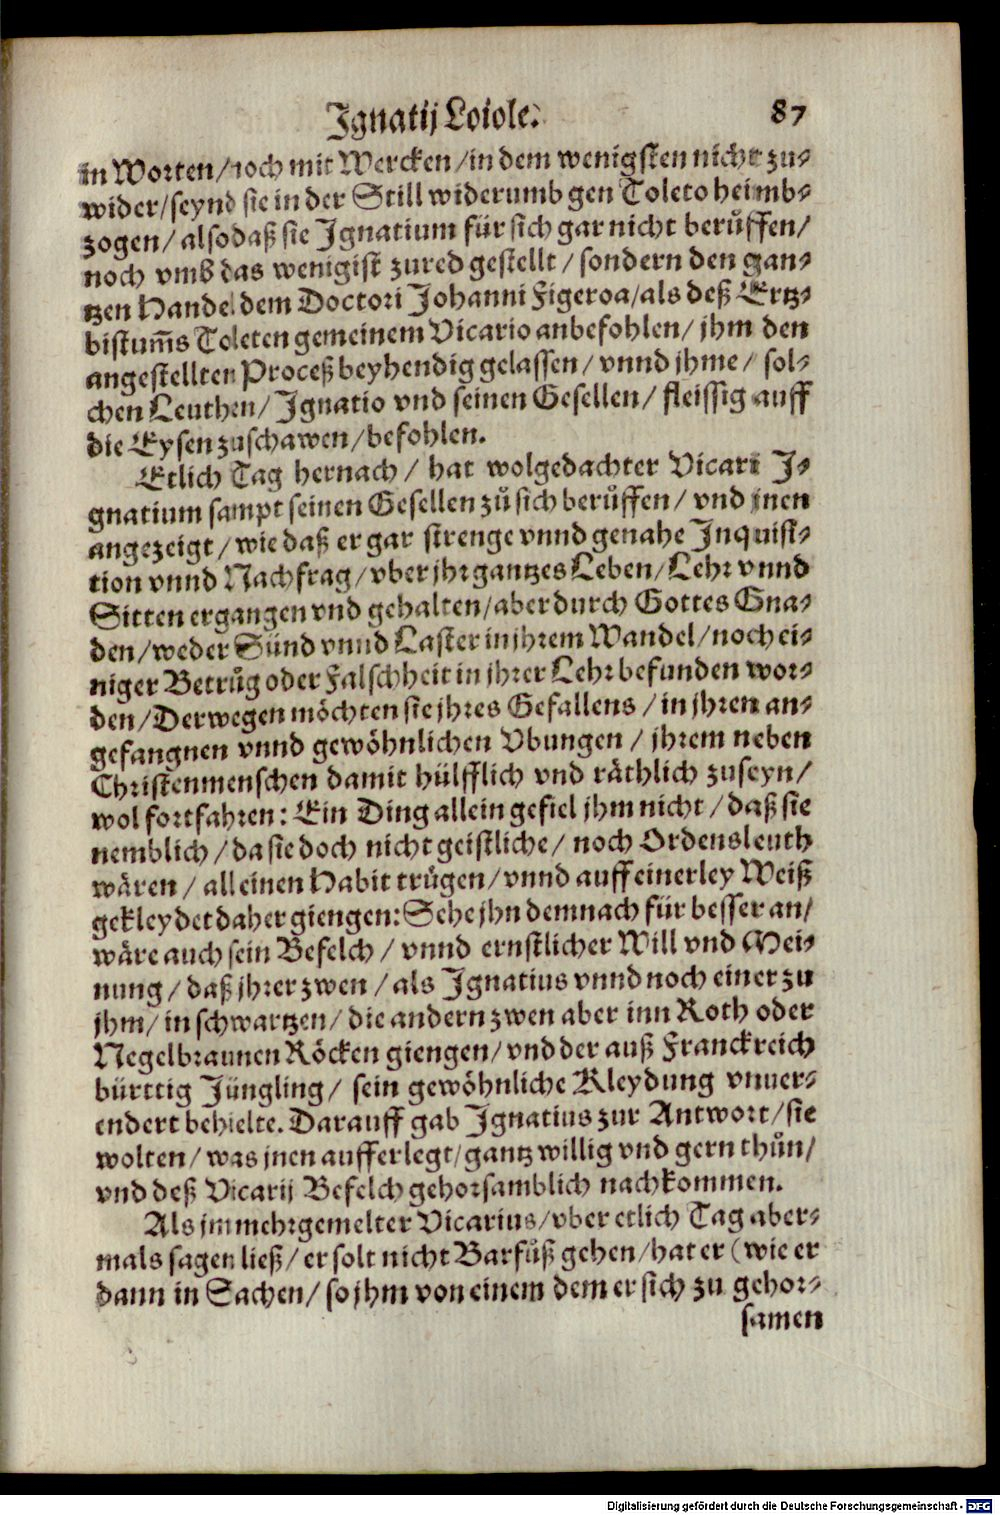 Ignatij Loiole. 87
in Worten/noch mit Wercken/in dem wenigsten nicht zu-
wider/seynd sie in der Still widerumb gen Toleto heimb-
zogen/also daß sie Ignatium für sich gar nicht berůffen/
noch vmb das wenigist zured gestellt/sondern den gan-
tzen Handel dem Doctori Johanni Figeroa/als deß Ertz-
bistum̃s Toleten gemeinem Vicario anbefohlen/jhm den
angestellten Proceß beyhendig gelassen/vnnd jhme/sol-
chen Leuthen/Ignatio vnd seinen Gesellen/fleissig auff
die Eysen zuschawen/befohlen.
Etlich Tag hernach/hat wolgedachter Vicari I-
gnatium sampt seinen Gesellen zů sich berůffen/vnd jnen
angezeigt/wie daß er gar strenge vnnd genahe Inquisi-
tion vnnd Nachfrag/vber jhr gantzes Leben/Lehr vnnd
Sitten ergangen vnd gehalten/aber durch Gottes Gna-
den/weder Sünd vnnd Laster in jhrem Wandel/noch ei-
niger Betrůg oder Falschheit in jhrer Lehr befunden wor-
den/Derwegen möchten sie jhres Gefallens/in jhren an-
gefangnen vnnd gewöhnlichen Vbungen/jhrem neben
Christenmenschen damit hülfflich vnd räthlich zuseyn/
wol fortfahren: Ein Ding allein gefiel jhm nicht/daß sie
nemblich/da sie doch nicht geistliche/noch Ordensleuth
wären/all einen Habit trůgen/vnnd auff einerley Weiß
gekleydet daher giengen: Sehe jhn demnach für besser an/
wäre auch sein Befelch/vnnd ernstlicher Will vnd Mei-
nung/daß jhrer zwen/als Ignatius vnnd noch einer zu
jhm/in schwartzen/die andern zwen aber inn Roth oder
Negelbraunen Röcken giengen/vnd der auß Franckreich
bürttig Jüngling/sein gewöhnliche Kleydung vnuer-
endert behielte. Darauff gab Ignatius zur Antwort/sie
wolten/was jnen aufferlegt/gantz willig vnd gern thůn/
vnd deß Vicarij Befelch gehorsamblich nachkommen.
Als jm mehrgemelter Vicarius/vber etlich Tag aber-
mals sagen ließ/er solt nicht Barfůß gehen/hat er (wie er
dann in Sachen/so jhm von einem dem er sich zu gehor-
samen
Digitalisierung gefördert durch die Deutsche Forschungsgemeinschaft - DFG